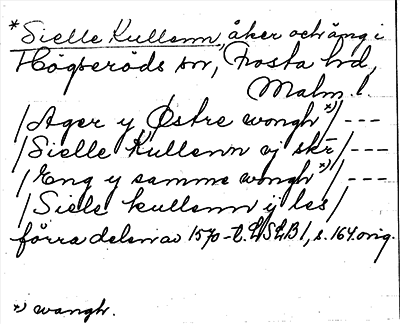 *Sielle Kullenn, åker och äng i
Högseröds sn, Frosta hd,
Malm. l.
/Ager y Østre wongh *)/ ---
/Sielle Kullenn vj skr/ ---
/Eng y samme wongh *)/ ---
/Siele kullenn ij les/
förra delen av 1570-t. LSLB1, s. 164 orig.
*) wangh.